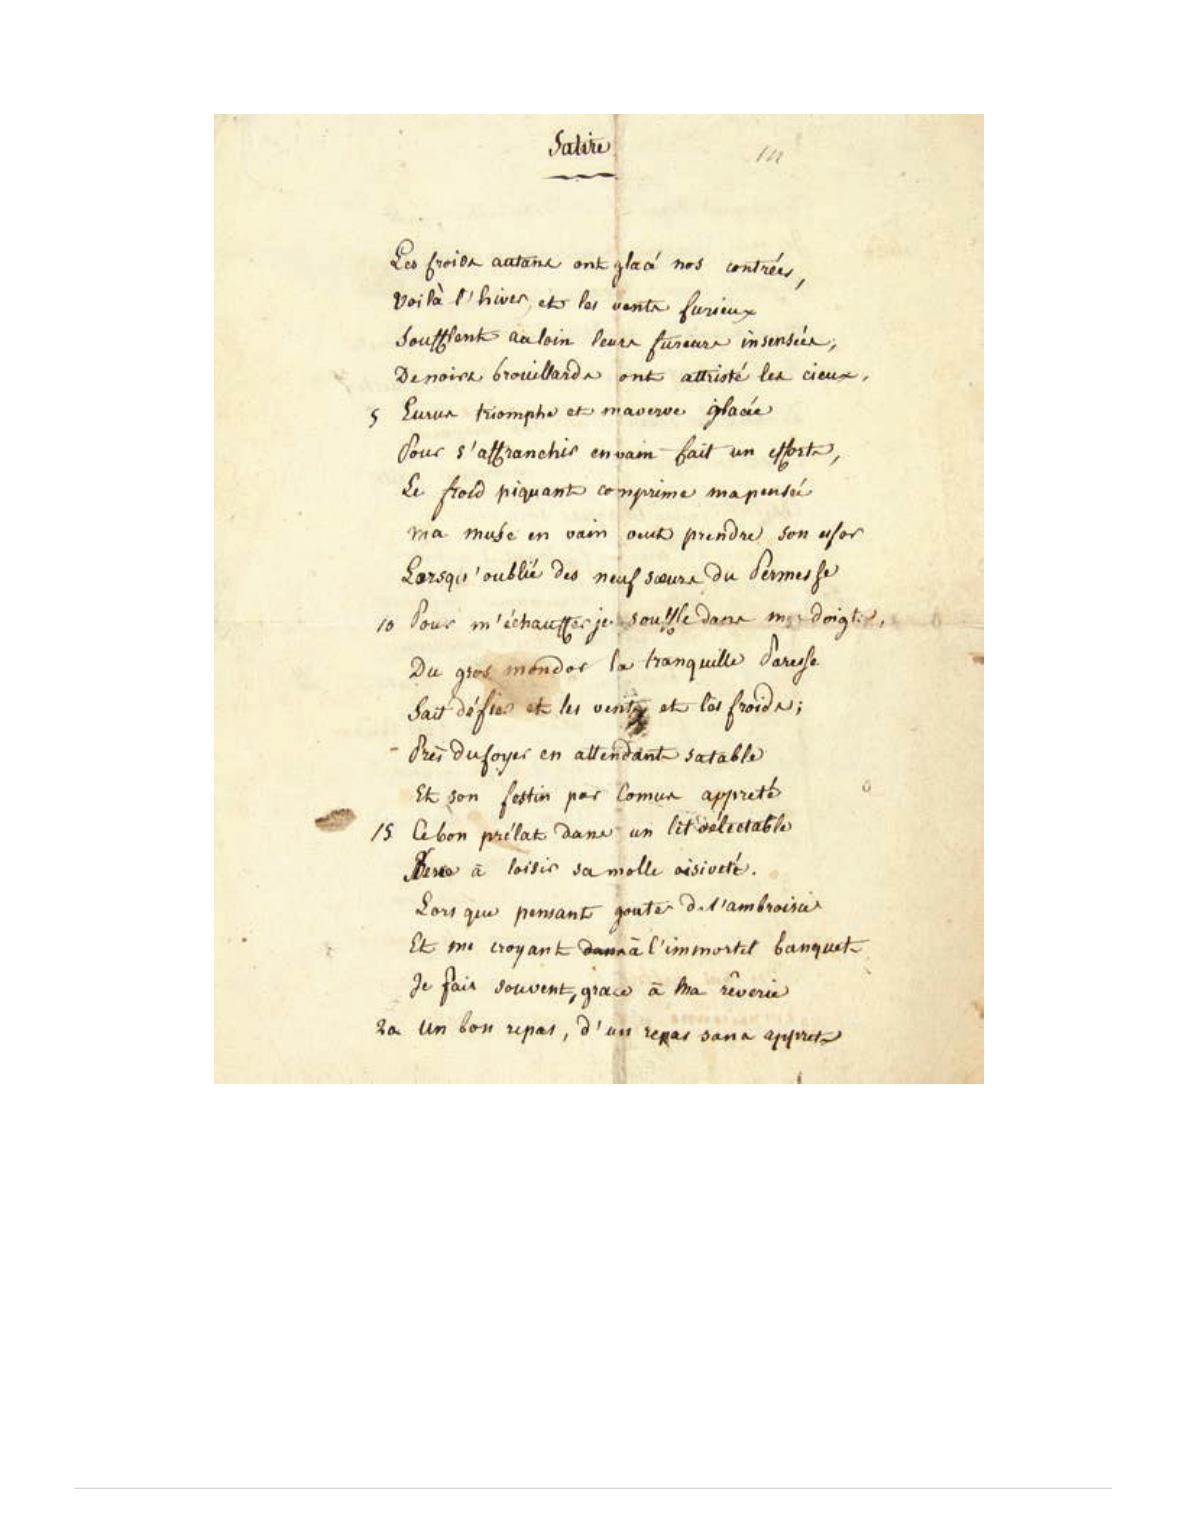 Satire
Les froids autans ont glacé nos contrées,
Voilà l'hiver, et les vents furieux
Soufflent au loin leurs fureurs insensées;
De noirs brouillards ont attristé les cieux,
5 Eurus triomphe et ma verve glacée
Pour s'affranchir en vain fait un effort,
Le froid piquant comprime ma pensée
ma muse en vain veut prendre son essor
Lorsqu'oublié des neuf sœurs du Permesse
10 Pour m'échauffer je souffle dans mes doigts,
Du gros mondor la tranquille Paresse
Sait défier et les vents et les froids;
Près du foyer en attendant sa table
Et son festin par Comus appreté
15 Ce bon prélat dans un lit délectable
à loisir sa molle oisiveté.
Lors que pensant gouter de l'ambroisie
Et me croyant dans à l'immortel banquet
Je fais souvent, grace à Ma rêverie
20 Un bon repas, d'un repas sans appret